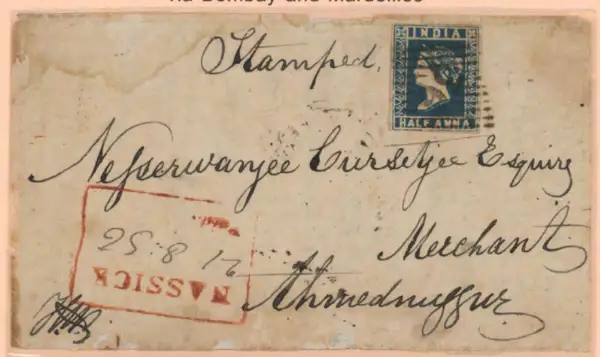 via Bombay and Marseilles
Stamped.
INDIA
HALF ANNA
Nesserwanjee Cursetjee Esquire
Merchant
Ahmednuggur
25 8 12
NASSICK